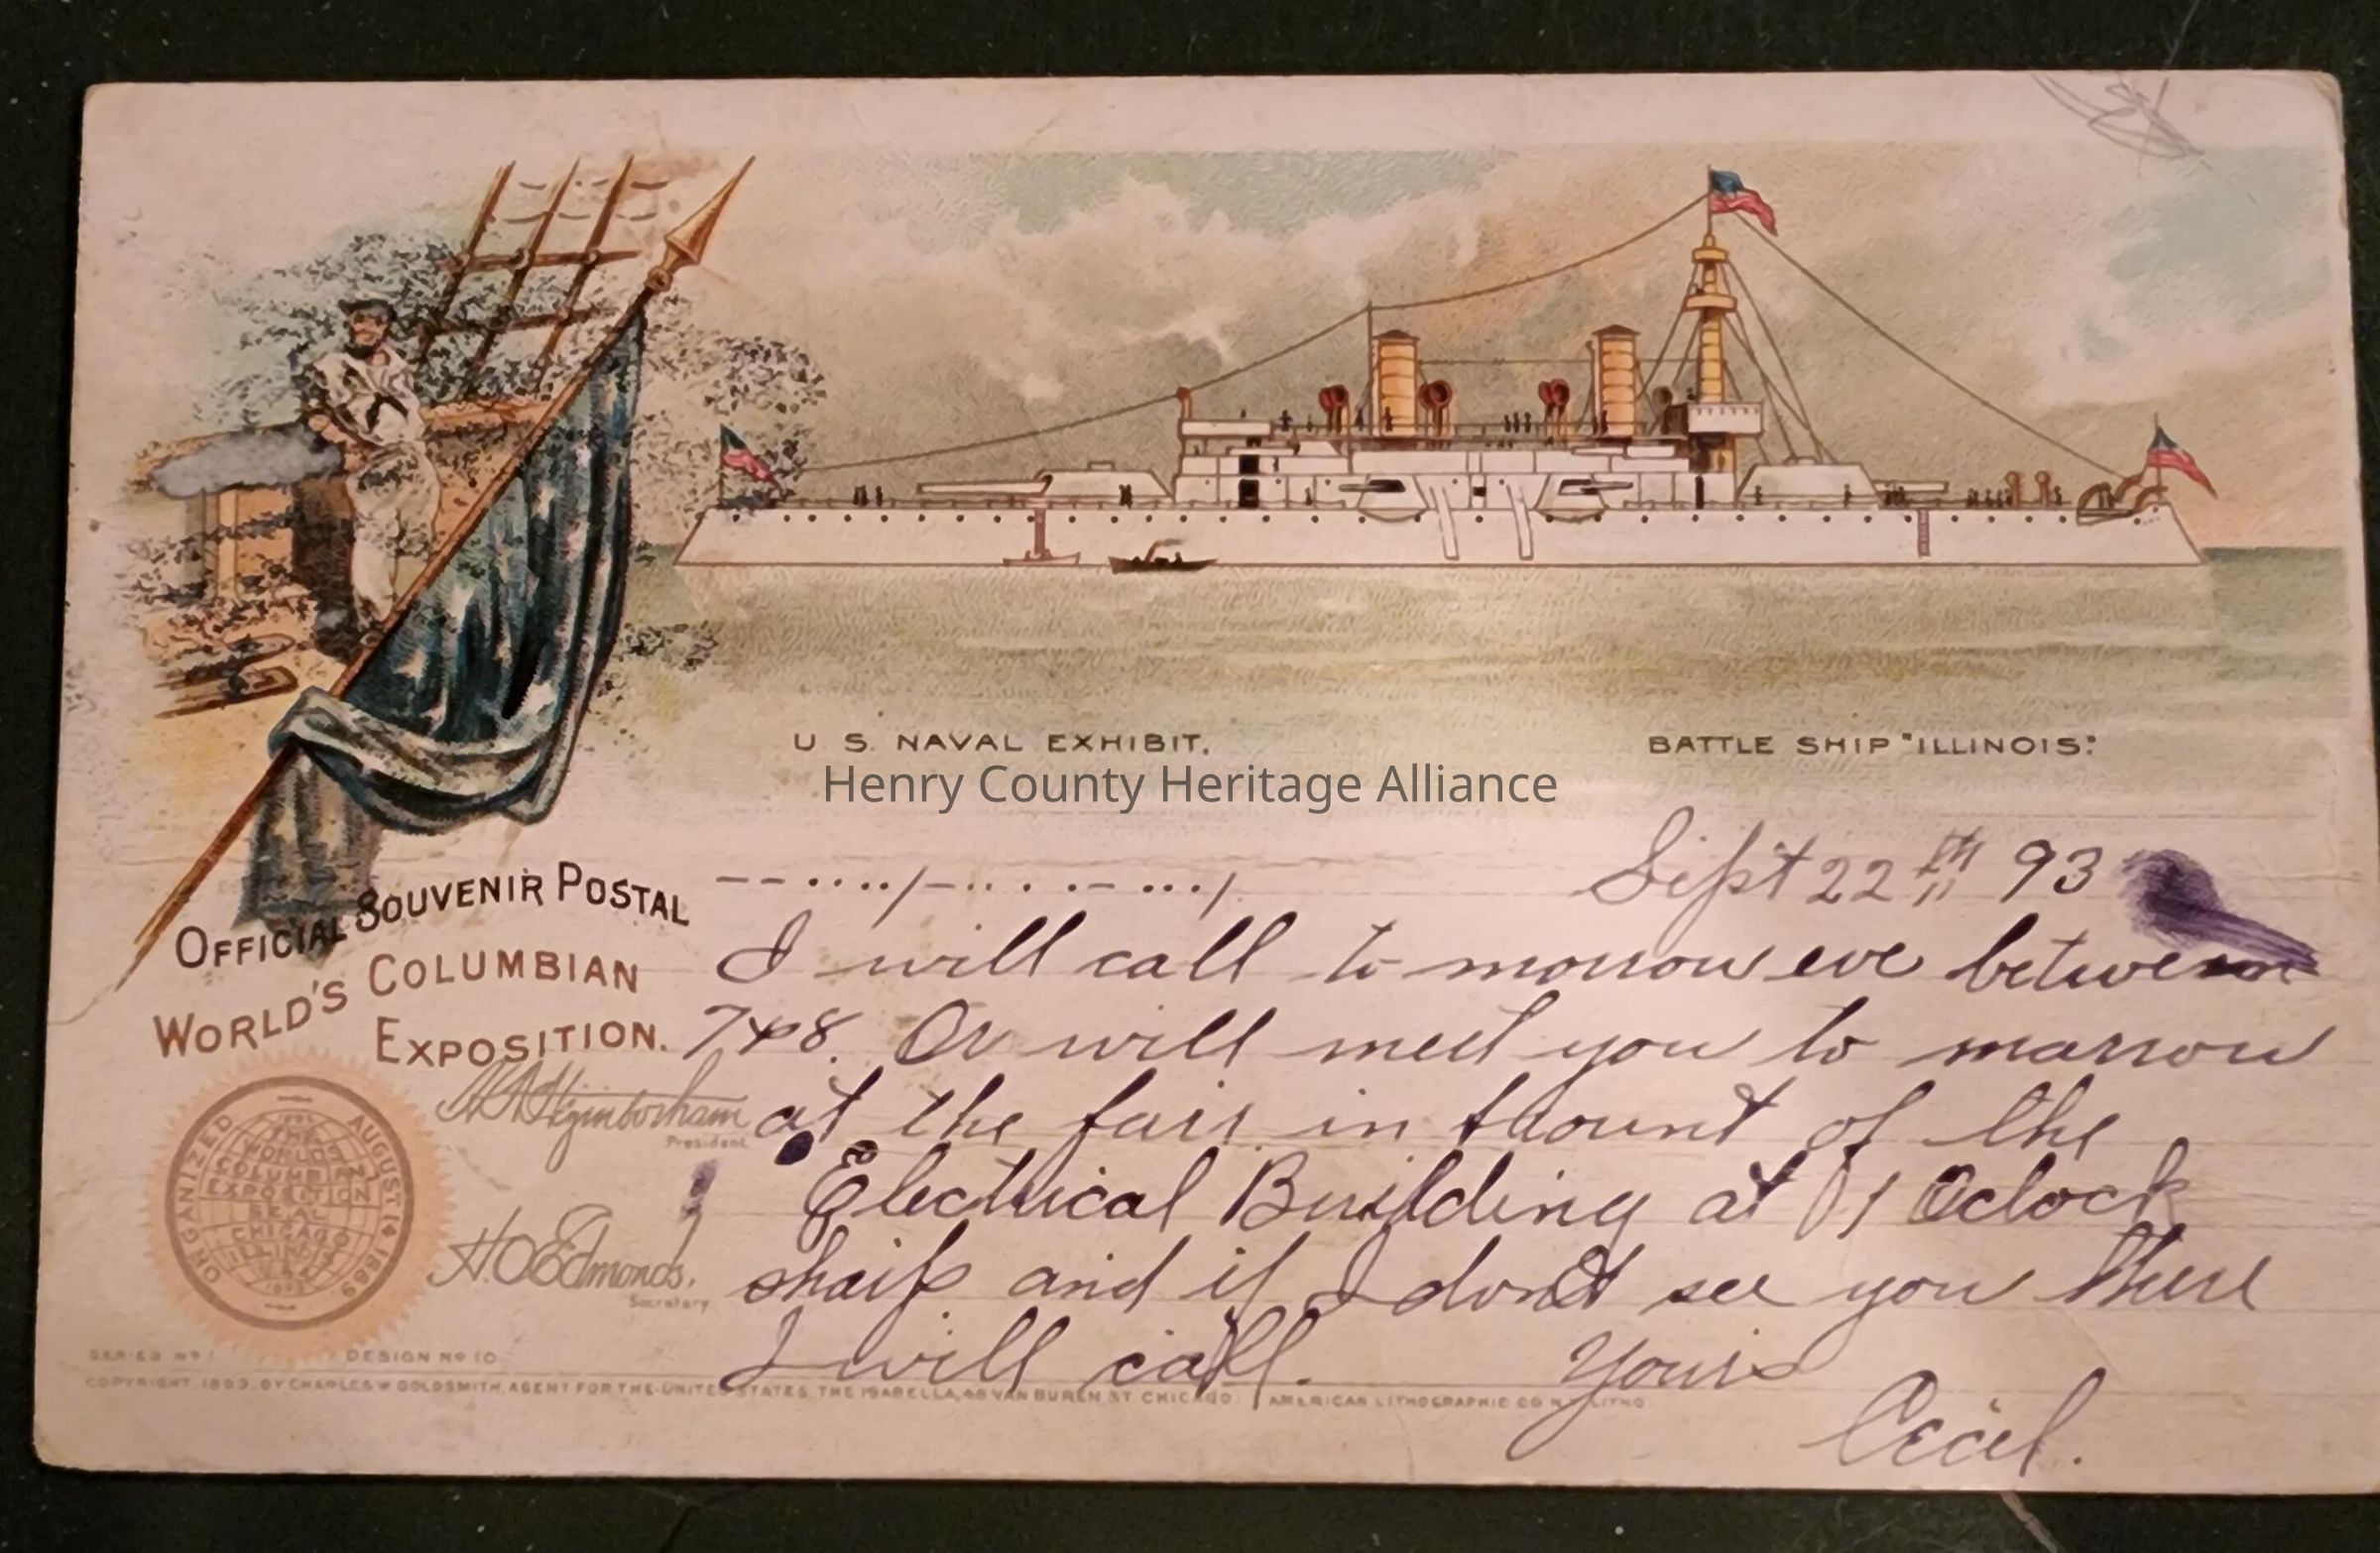 U. S. NAVAL EXHIBIT.
BATTLE SHIP "ILLINOIS".
Henry County Heritage Alliance
OFFICIAL SOUVENIR POSTAL
WORLD'S COLUMBIAN
EXPOSITION.
Sept 22 th 93
I will call to morrow eve between
7 & 8. Or will meet you to marrow
at the fair in frount of the
Electrical Building at 1 Oclock
sharp and if I don't see you there
I will call. Yours
Cecil.
H N Higinbotham
President
H. O. Edmonds.
Secretary
ORGANIZED AUGUST 14 1889
THE
WORLD'S
COLUMBIAN
EXPOSITION
SEAL
CHICAGO
ILLINOIS
SERIES No 1 DESIGN No 10
COPYRIGHT, 1893, BY CHARLES W GOLDSMITH, AGENT FOR THE UNITED STATES, THE ISABELLA, 48 VAN BUREN ST. CHICAGO. AMERICAN LITHOGRAPHIC CO N.Y. LITHO